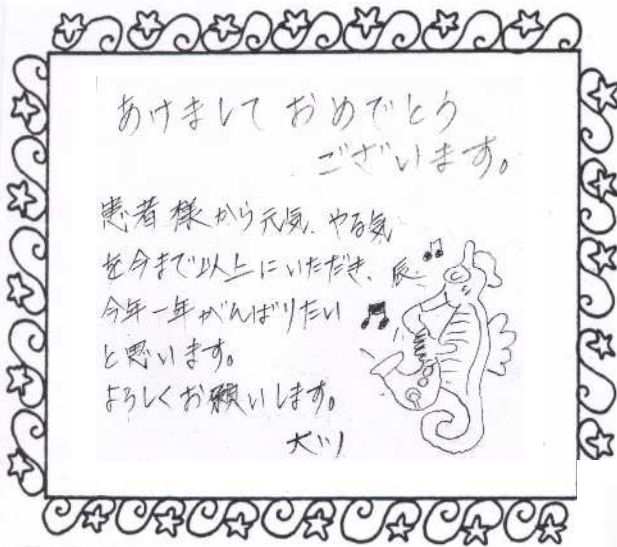 あけまして おめでとう
ございます。
患者様から元気、やる気
を今まで以上にいただき、
辰
今年一年がんばりたい
と思います。
よろしくお願いします。
大ツ